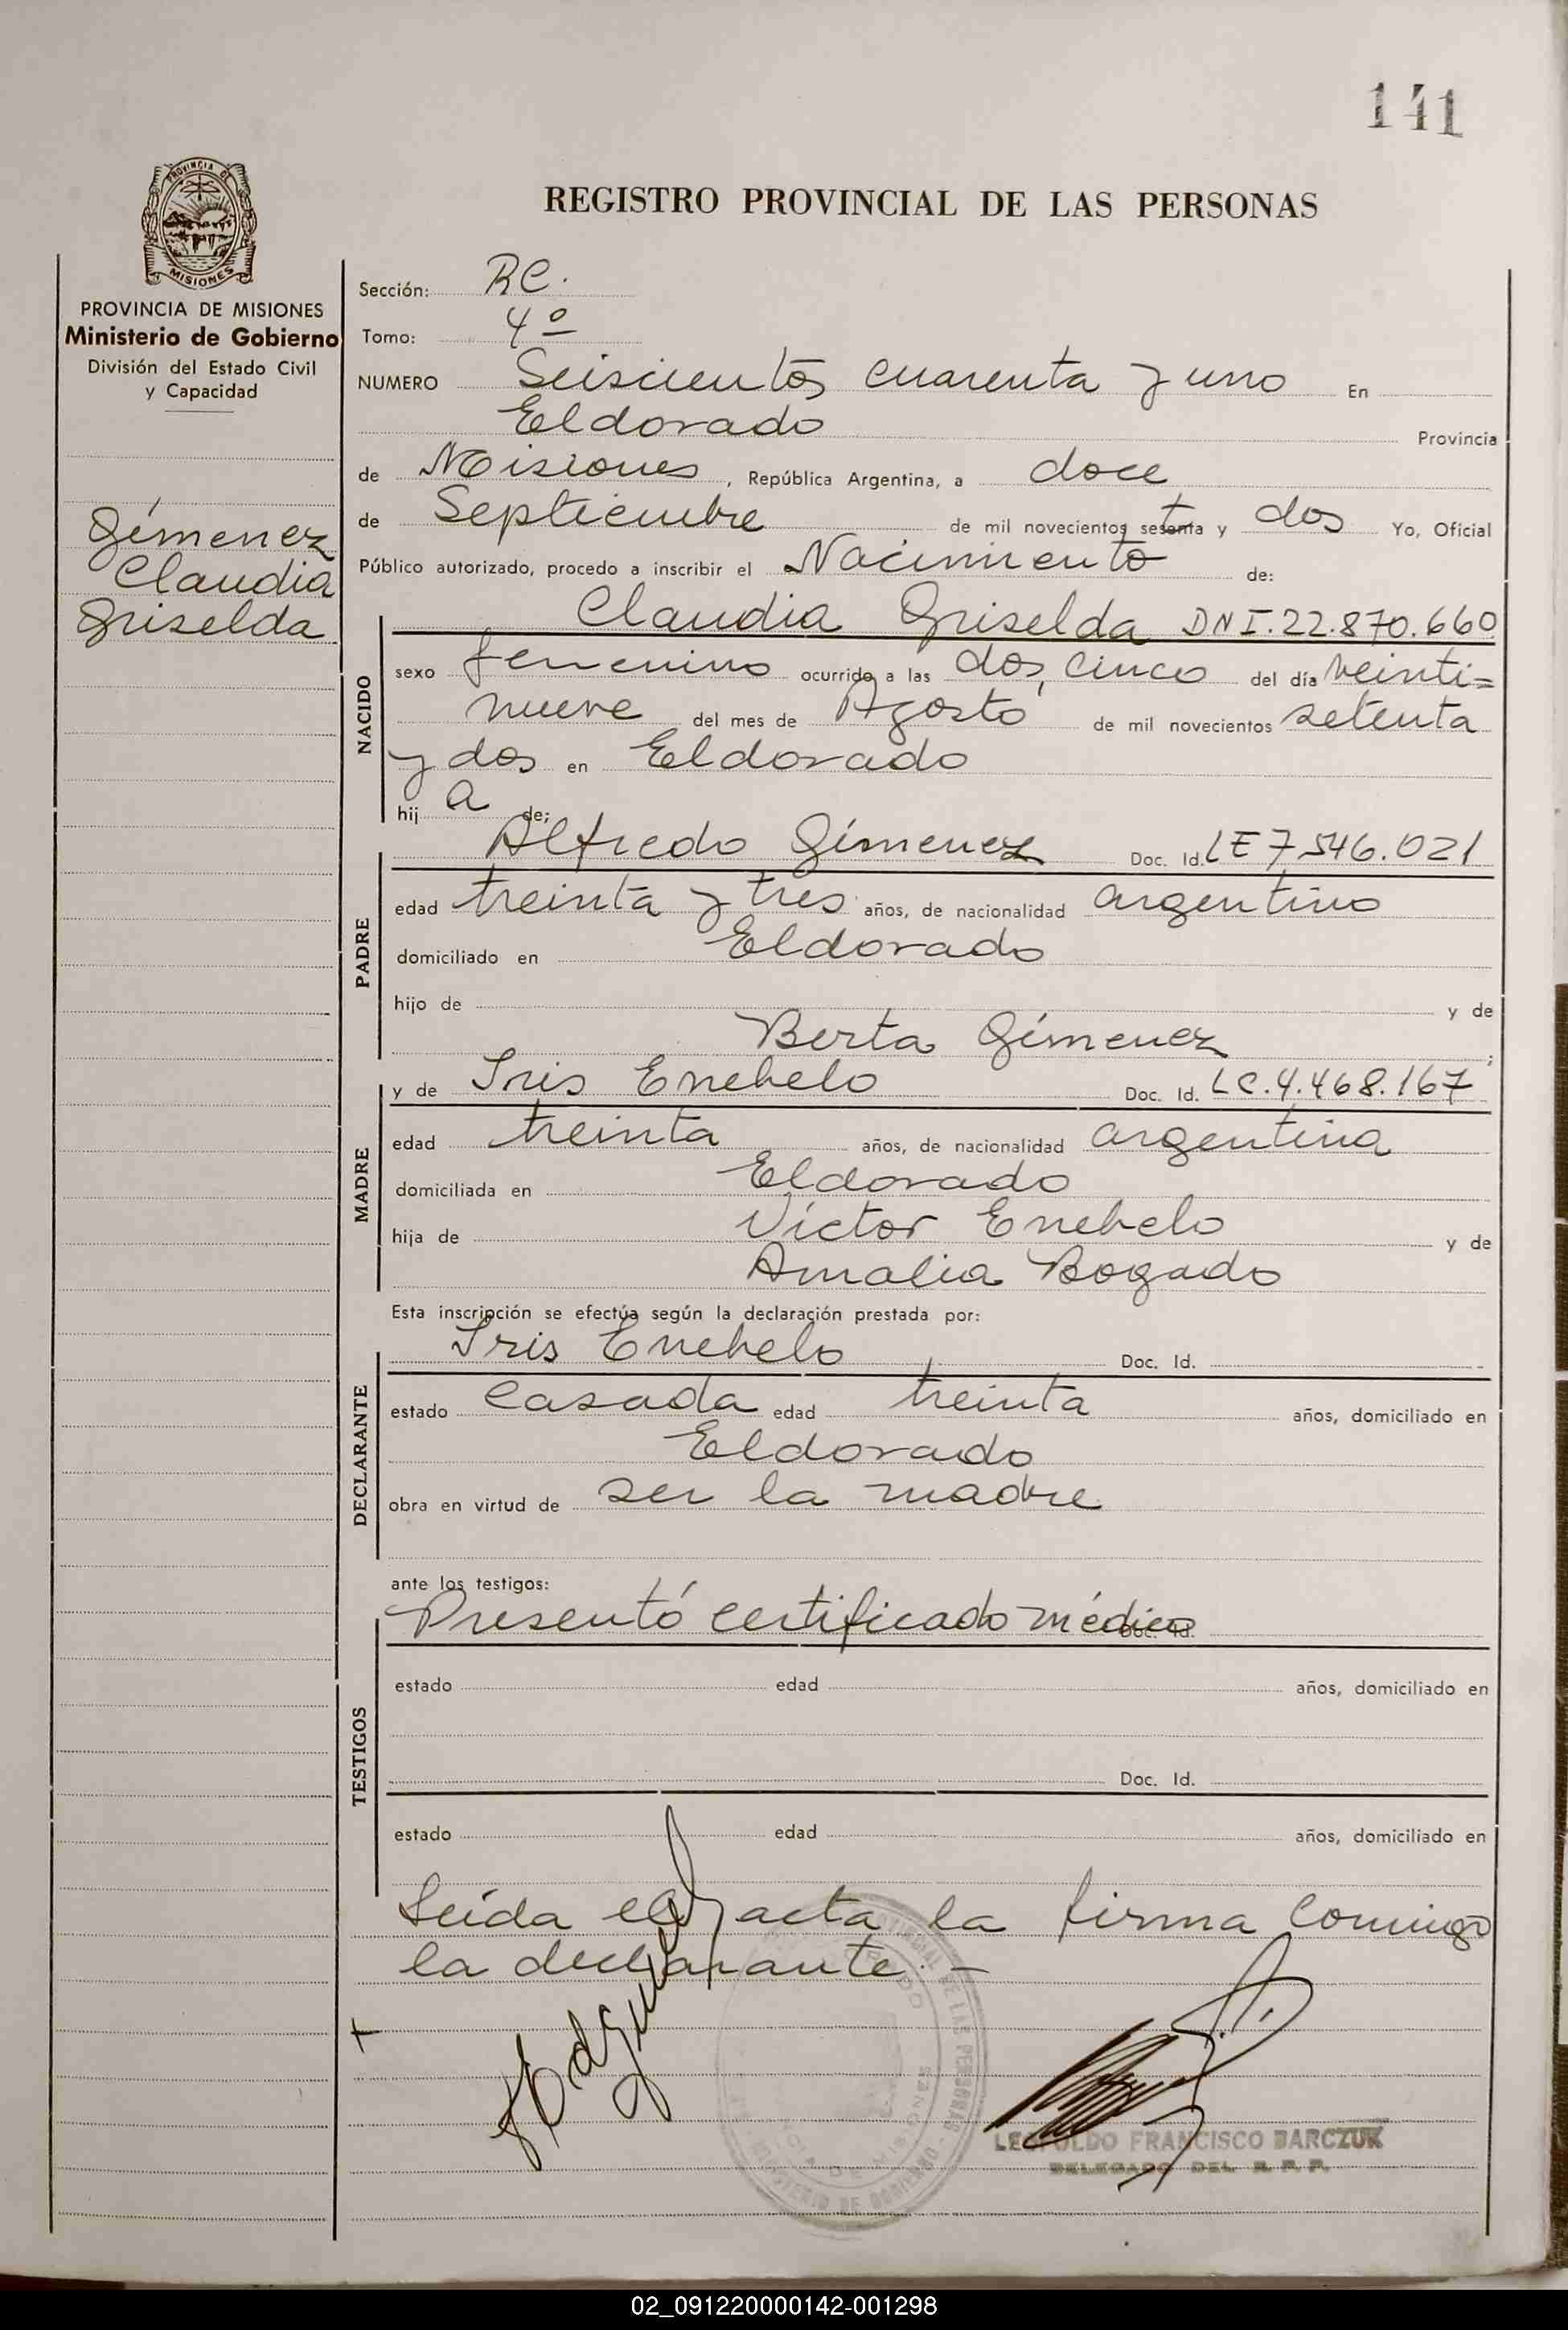 141
PROVINCIA DE
MISIONES
REGISTRO PROVINCIAL DE LAS PERSONAS
PROVINCIA DE MISIONES
Ministerio de Gobierno
División del Estado Civil
y Capacidad
Gímenez
Claudia
Griselda
Sección: RC.
Tomo: 4º
NUMERO Seiscientos cuarenta y uno En
Eldorado Provincia
de Misiones, República Argentina, a doce
de Septiembre de mil novecientos setenta y dos Yo, Oficial
Público autorizado, procedo a inscribir el Nacimiento de:
Claudia Griselda DNI.22.870.660
NACIDO
sexo femenino ocurrido a las dos, cinco del día veinti=
nueve del mes de Agosto de mil novecientos setenta
y dos en Eldorado
hij a de:
Alfredo Gímenez Doc. Id. LE 7.546.021
PADRE
edad treinta y tres años, de nacionalidad argentino
domiciliado en Eldorado
hijo de y de
Berta Gímenez ;
y de Iris Enebelo Doc. Id. LC.4.468.167
MADRE
edad treinta años, de nacionalidad argentina
domiciliada en Eldorado
hija de Víctor Enebelo y de
Amalia Bogado
Esta inscripción se efectúa según la declaración prestada por:
Iris Enebelo Doc. Id.
DECLARANTE
estado casada edad treinta años, domiciliado en
Eldorado
obra en virtud de ser la madre
ante los testigos:
Presentó certificado médico Doc. Id.
TESTIGOS
estado edad años, domiciliado en
Doc. Id.
estado edad años, domiciliado en
Leída el acta la firma conmigo
la declarante. -
LEOPOLDO FRANCISCO BARCZUK
DELEGADO DEL R. P. P.
02_091220000142-001298